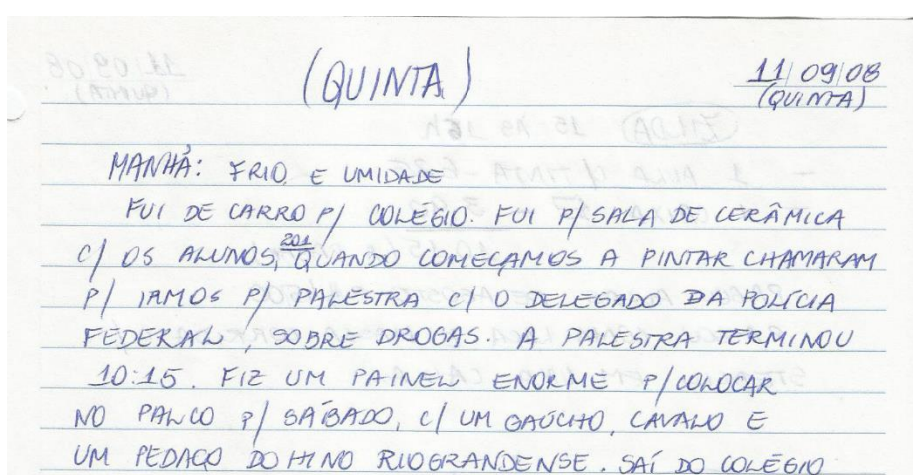 (QUINTA)
11/09/08
(QUINTA)
MANHÃ: FRIO E UMIDADE
FUI DE CARRO P/ COLÉGIO. FUI P/ SALA DE CERÂMICA
C/ OS ALUNOS, 201 QUANDO COMEÇAMOS A PINTAR CHAMARAM
P/ IRMOS P/ PALESTRA C/ O DELEGADO DA POLÍCIA
FEDERAL, SOBRE DROGAS. A PALESTRA TERMINOU
10:15. FIZ UM PAINEL ENORME P/ COLOCAR
NO PALCO P/ SÁBADO, C/ UM GAÚCHO, CAVALO E
UM PEDAÇO DO HINO RIOGRANDENSE. SAÍ DO COLÉGIO